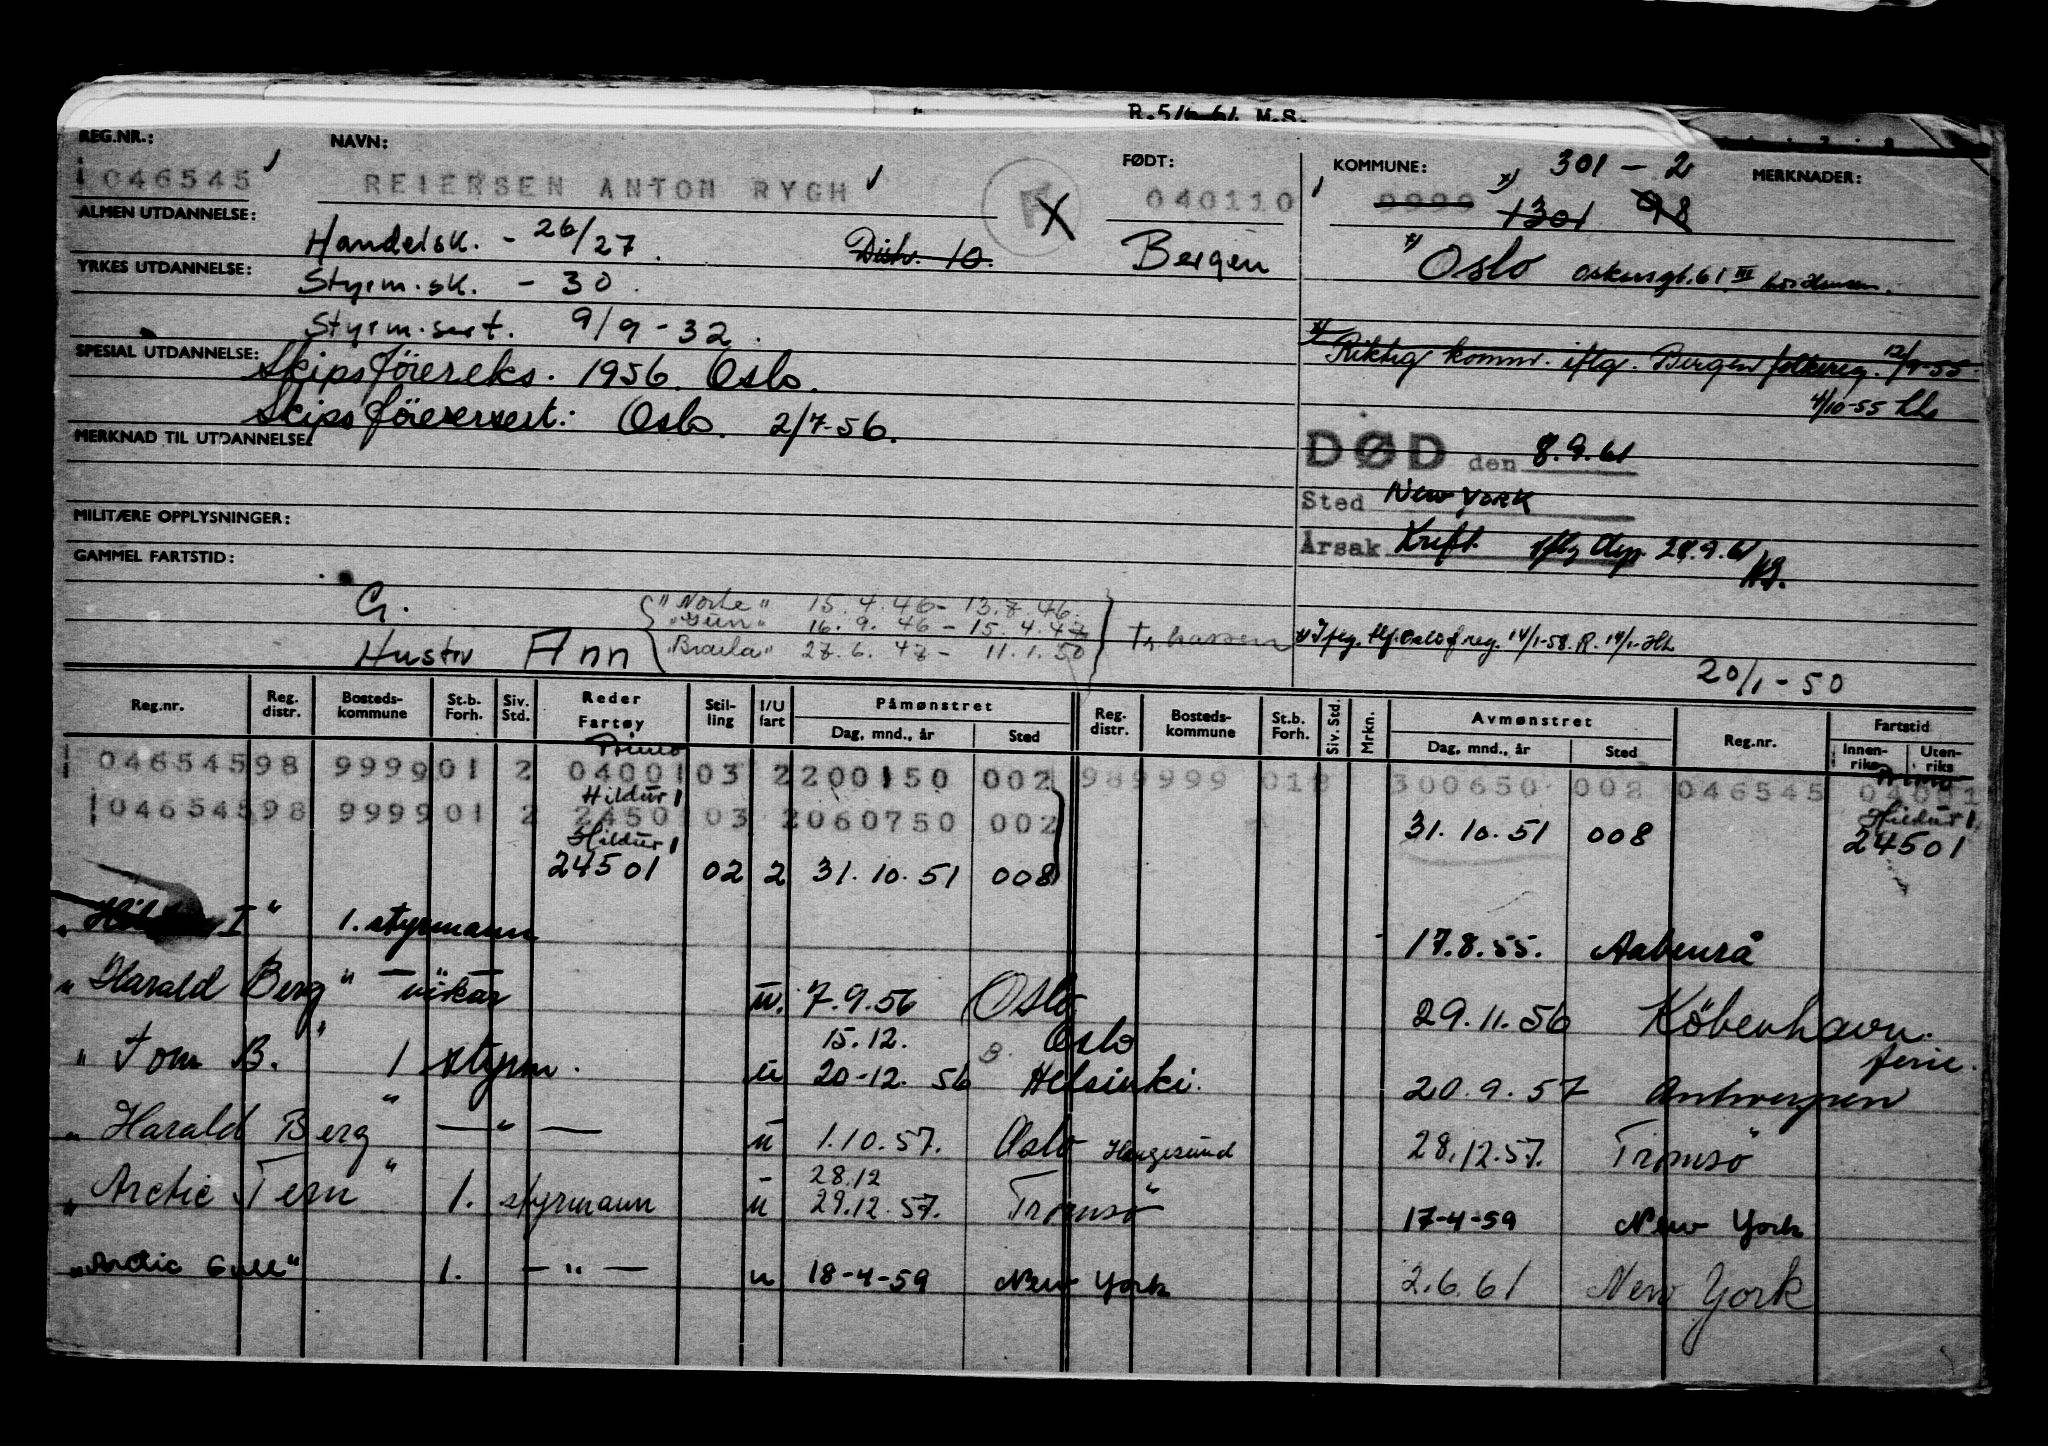 REG.NR.: NAVN: FØDT: KOMMUNE: 301 - 2 MERKNADER:
046545 REIERSEN ANTON RYGH 040110 9999 1301 98
ALMEN UTDANNELSE: Handelsk. - 26/27. Distr. 10. Bergen Oslo Oskarsgt. 61 III
YRKES UTDANNELSE: Styrm.sk. - 30.
Styrm.sert. 9/9-32.
Riktig komm. iflg. Bergen folkereg. 12/9-55
SPESIAL UTDANNELSE: Skipsföiereks. 1956. Oslo.
4/10-55
Skipsföiersert: Oslo. 2/7-56.
MERKNAD TIL UTDANNELSE:
DØD den 8.9.61
Sted New York
MILITÆRE OPPLYSNINGER:
Årsak Kreft iflg 28.9.61
GAMMEL FARTSTID:
G. "Norse" 15.4.46 - 13.7.46.
"Gun" 16.9.46 - 15.4.47
Hustru Ann "Braila" 27.6.47 - 11.1.50
14/1-58. R. 14/1
20/1-50
Reg.nr. Reg. distr. Bosteds-kommune St.b. Forh. Siv. Std. Reder Fartøy Stil-ling I/U fart Påmønstret Dag, mnd., år Sted Reg. distr. Bosteds-kommune St.b. Forh. Siv. Std. Mrkn. Avmønstret Dag, mnd., år Sted Reg.nr. Fartstid Innen-riks Uten-riks
Primo Primo
046545 98 9999 01 2 04001 03 2 200150 002 98 9999 01 2 300650 002 046545 04001
Hildur I Hildur I
046545 98 9999 01 2 2450 03 2 060750 002 31.10.51 008 24501
Hildur I
24501 02 2 31.10.51 008
I" 1. styrmann 17.8.55. Aabenrå
"Harald Berg" — " — vikar u. 7.9.56 Oslo 29.11.56 Köbenhavn.
15.12. Oslo ferie.
"Tom B." 1 styrm. u 20-12. 56 Helsinki. 20.9.57 Antwerpen
"Harald Berg" — " — u 1.10.57. Oslo Haugesund 28.12.57. Tromsö
28.12
"Arctic Tern" 1. styrmann u 29.12.57. Tromsö 17-4-59 New York
"Arctic Gull" 1. — " — u 18-4-59 New York 2.6.61 New York